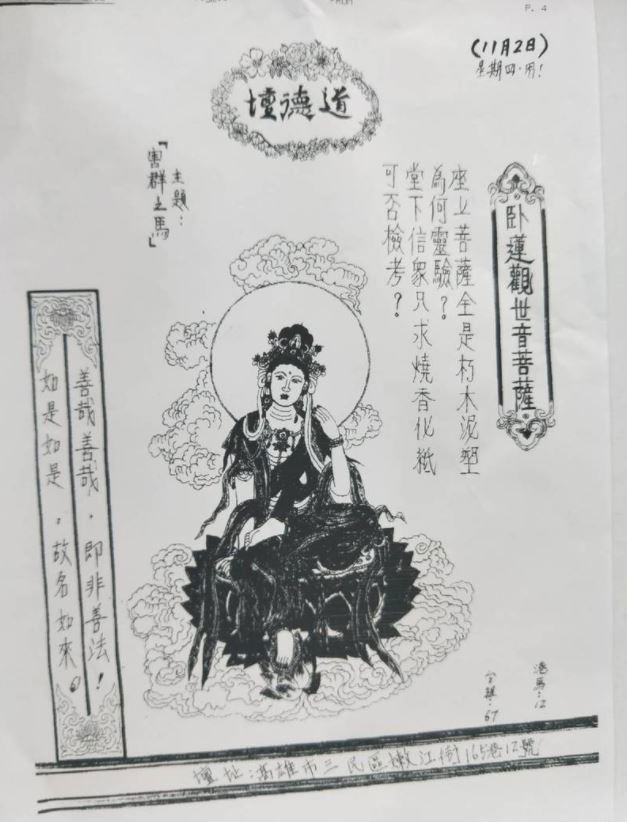 P. 4
(11月2日)
星期四·用!
道德壇
臥蓮觀世音菩薩
座上菩薩全是朽木泥塑
為何靈驗?
堂下信眾只求燒香化紙
可否檢考?
主題:
「害群之馬」
善哉善哉,即非善法!
如是如是。故名如來。
港馬:12
合雜:67
壇址:高雄市三民區嫩江街165巷12號